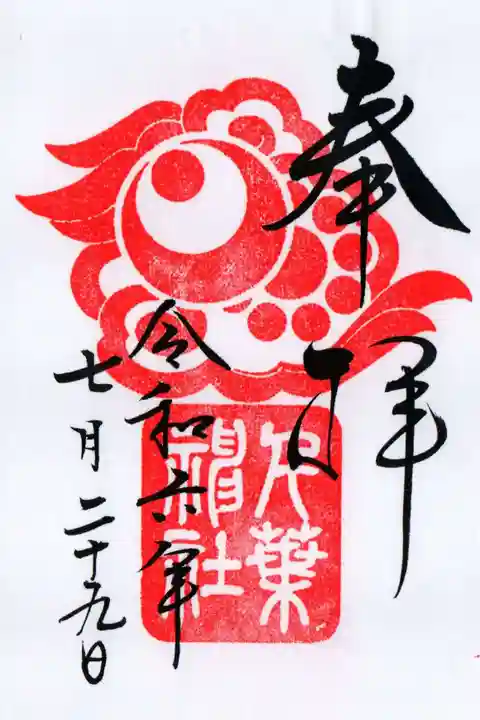 奉拜
令和六年
七月二十九日
足葉
神社